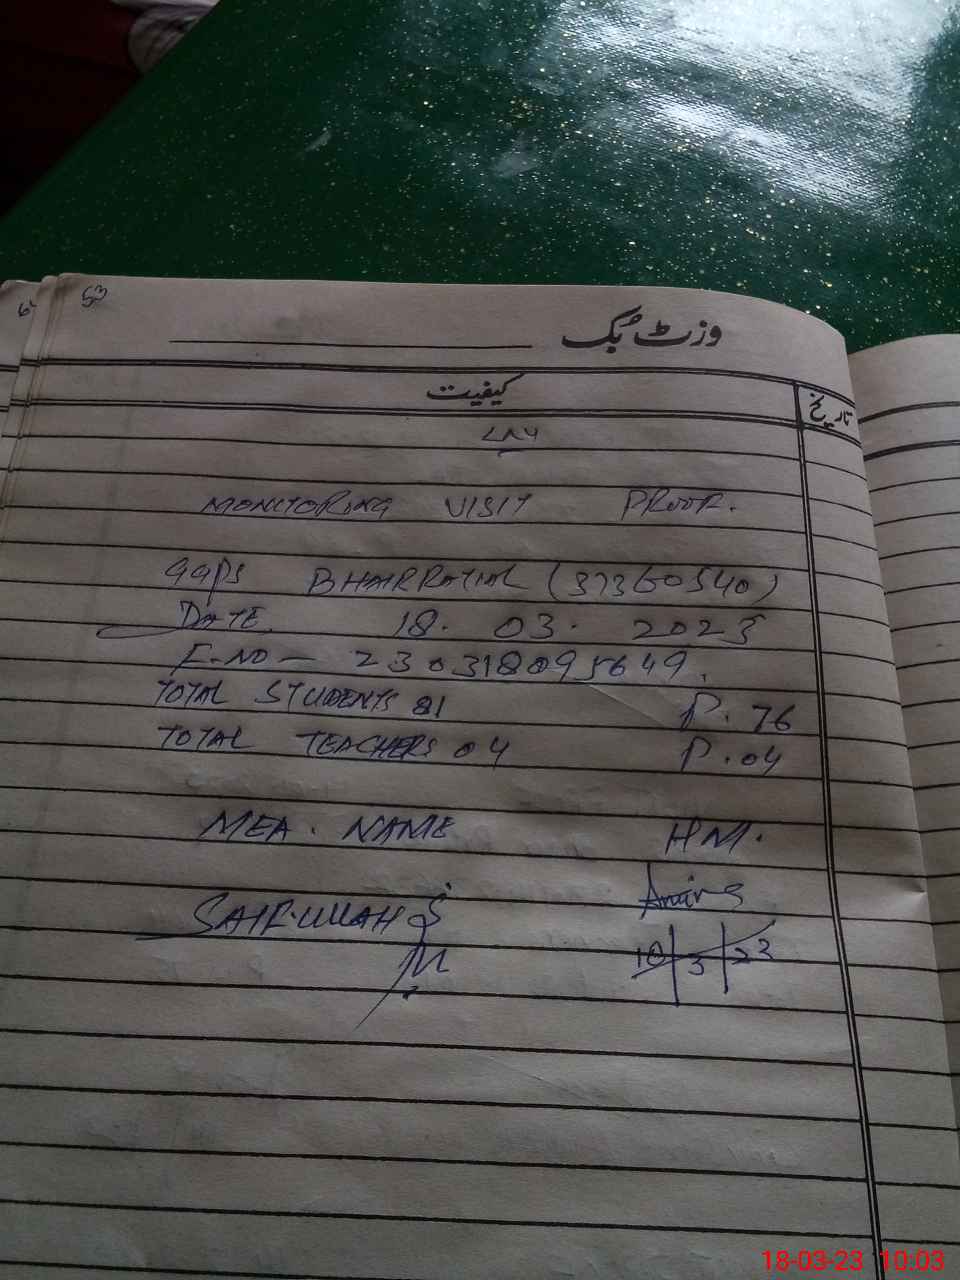 53
وزٹ بُک
کیفیت
تاریخ
۷۸۶
MONITORING VISIT PROOF.
GGPS BHAIR RATIAL (37360540)
DATE 18. 03. 2023
E-NO - 230318095649.
TOTAL STUDENTS 81 P. 76
TOTAL TEACHERS 04 P. 04
MEA. NAME HM.
SAIF.ULLAH
18/3/23
18-03-23 10:03